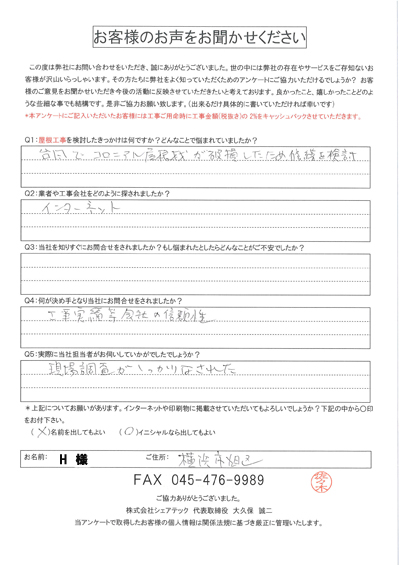 お客様のお声をお聞かせください
この度は弊社にお問い合わせをいただき、誠にありがとうございました。世の中には弊社の存在やサービスをご存知ないお
客様が沢山いらっしゃいます。その方たちに弊社をよく知っていただくためのアンケートにご協力いただけるでしょうか？ お客
様のご意見をお聞かせいただき今後の活動に反映させていただきたいと考えております。良かったこと、嬉しかったことどのよ
うな些細な事でも結構です。是非ご協力お願い致します。（出来るだけ具体的に書いていただければ幸いです）
*本アンケートにご記入いただいたお客様には工事ご用命時に工事金額（税抜き）の 2%をキャッシュバックさせていただきます。
Q1:屋根工事を検討したきっかけは何ですか？どんなことで悩まれていましたか？
台風でコロニアル屋根材が破損したため修繕を検討
Q2：業者や工事会社をどのように探されましたか？
インターネット
Q3：当社を知りすぐにお問合せをされましたか？もし悩まれたとしたらどんなことがご不安でしたか？
Q4：何が決め手となり当社にお問合せをされましたか？
工事実績等会社の信頼性
Q5：実際に当社担当者がお伺いしていかがでしたでしょうか？
現場調査がしっかりなされた
＊上記についてお願いがあります。インターネットや印刷物に掲載させていただいてもよろしいでしょうか？下記の中から〇印
をお付下さい。
（ X ）名前を出してもよい （ O ）イニシャルなら出してもよい
お名前： H 様 ご住所： 横浜市旭区
FAX 045-476-9989
佐々木
ご協力ありがとうございました。
株式会社シェアテック 代表取締役 大久保 誠二
当アンケートで取得したお客様の個人情報は関係法規に基づき厳正に管理いたします。